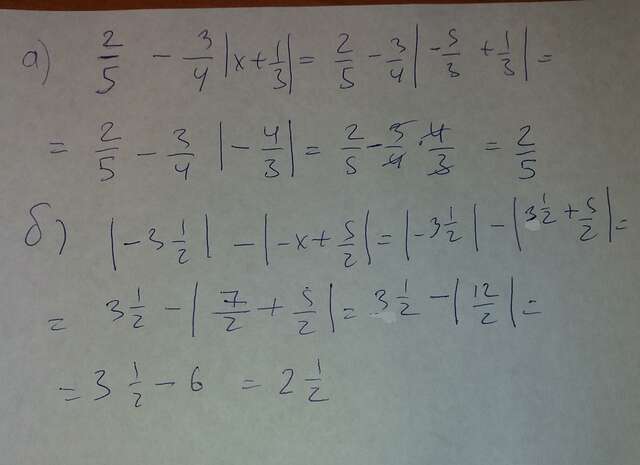 а) 2/5 - 3/4 |x + 1/3| = 2/5 - 3/4 |-5/3 + 1/3| =
= 2/5 - 3/4 |-4/3| = 2/5 - 3/4 · 4/3 = 2/5
б) |-3 1/2| - |-x + 5/2| = |-3 1/2| - |3 1/2 + 5/2| =
= 3 1/2 - |7/2 + 5/2| = 3 1/2 - |12/2| =
= 3 1/2 - 6 = 2 1/2